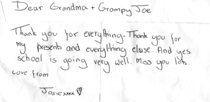 Dear Grandma + Grampy Joe
Thank you for everything. Thank you for
my presents and everything else. And yes
school is going very well. Miss you lots
love from